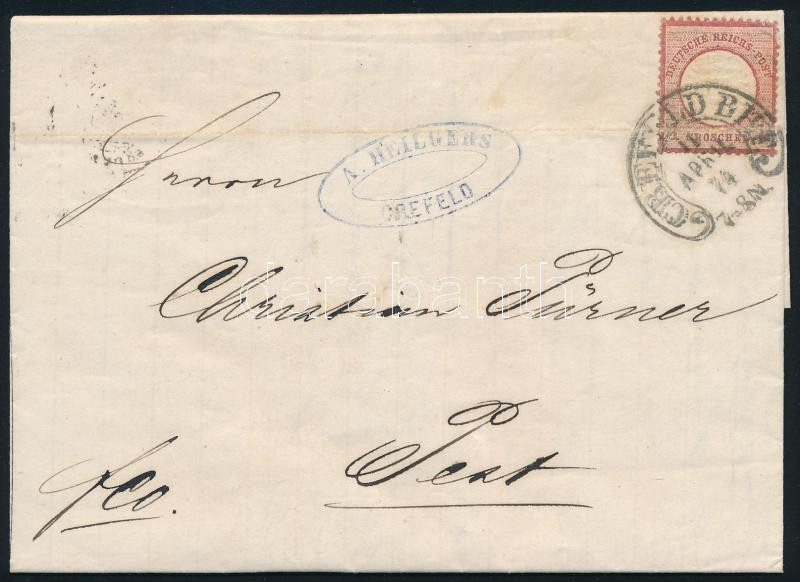 DEUTSCHE REICHS-POST
GROSCHEN
CREFELD BHF
APRIL
74
7-8N
A. HEILGERS
CREFELD
Herrn
Christian Pürner
Pest
fco.
darabanth